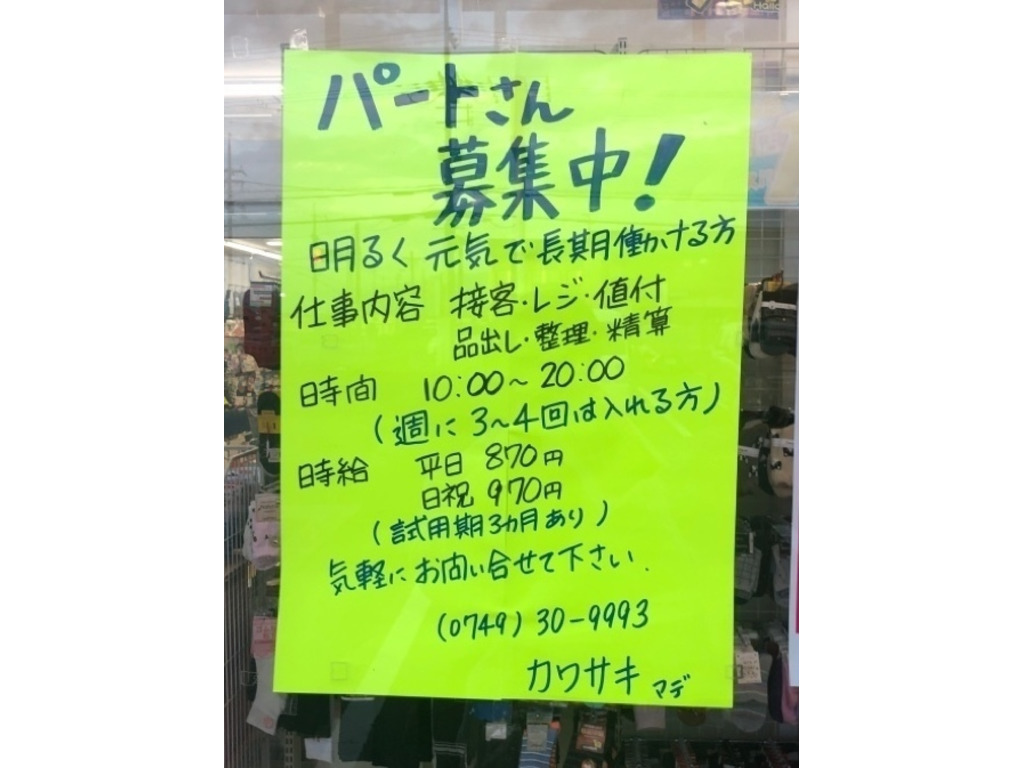 パートさん
募集中!
明るく元気で長期働かける方
仕事内容 接客・レジ・値付
品出し・整理・精算
時間 10:00～20:00
(週に3～4回は入れる方)
時給 平日 870円
日祝 970円
(試用期3ヵ月あり)
気軽にお問い合せて下さい.
(0749)30-9993
カワサキ マデ